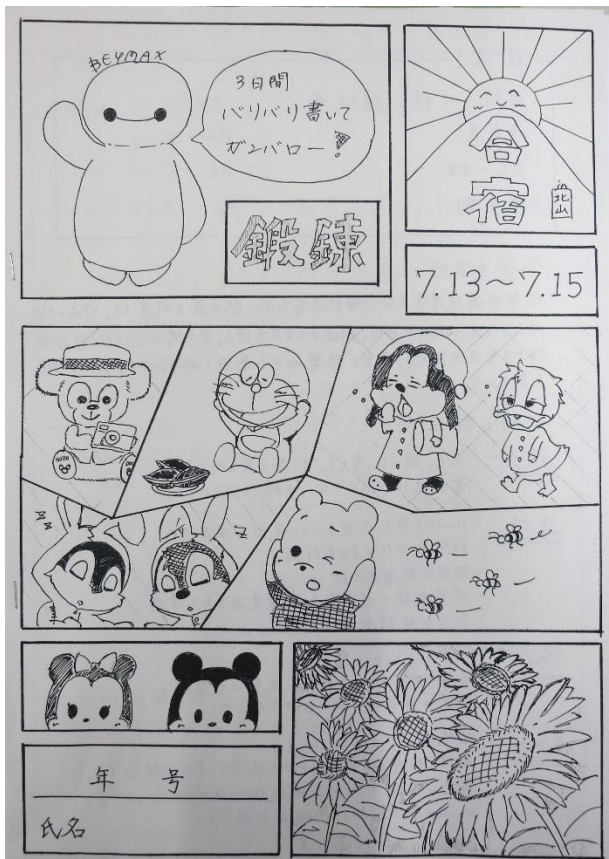 BEYMAX
3日間
バリバリ書いて
ガンバロー!
鍛錬
合
宿
in
北山
7.13〜7.15
zz
z
年 号
氏名